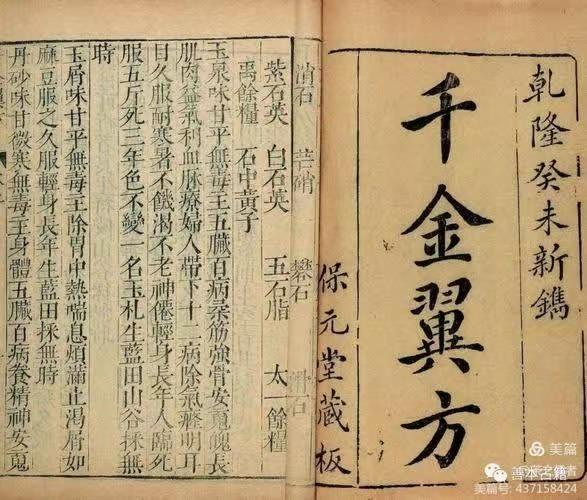 乾隆癸未新鐫
千金翼方
保元堂藏板
消石 芒硝 礬石 滑石
紫石英 白石英 五石脂 太一餘糧
禹餘糧 石中黃子
玉泉味甘平無毒主五臟百病柔筋強骨安䰟魄長
肌肉益氣利血脉療婦人帶下十二病除氣癃明耳
目久服耐寒暑不饑渴不老神僊輕身長年人臨死
服五斤死三年色不變一名玉札生藍田山谷採無
時
玉屑味甘平無毒主除胃中熱喘息煩滿止渴屑如
麻豆服之久服輕身長年生藍田採無時
丹砂味甘微寒無毒主身體五臟百病養精神安䰟
美篇
善本古籍
美篇号: 437158424